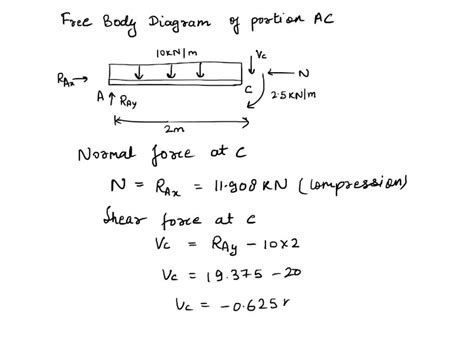 Free Body Diagram of portion AC
10KN/m
Vc
RAx
N
A
RAy
C
2.5KN/m
2m
Normal force at C
N = RAx = 11.908 KN (Compression)
Shear force at C
Vc = RAy - 10x2
Vc = 19.375 - 20
Vc = -0.625